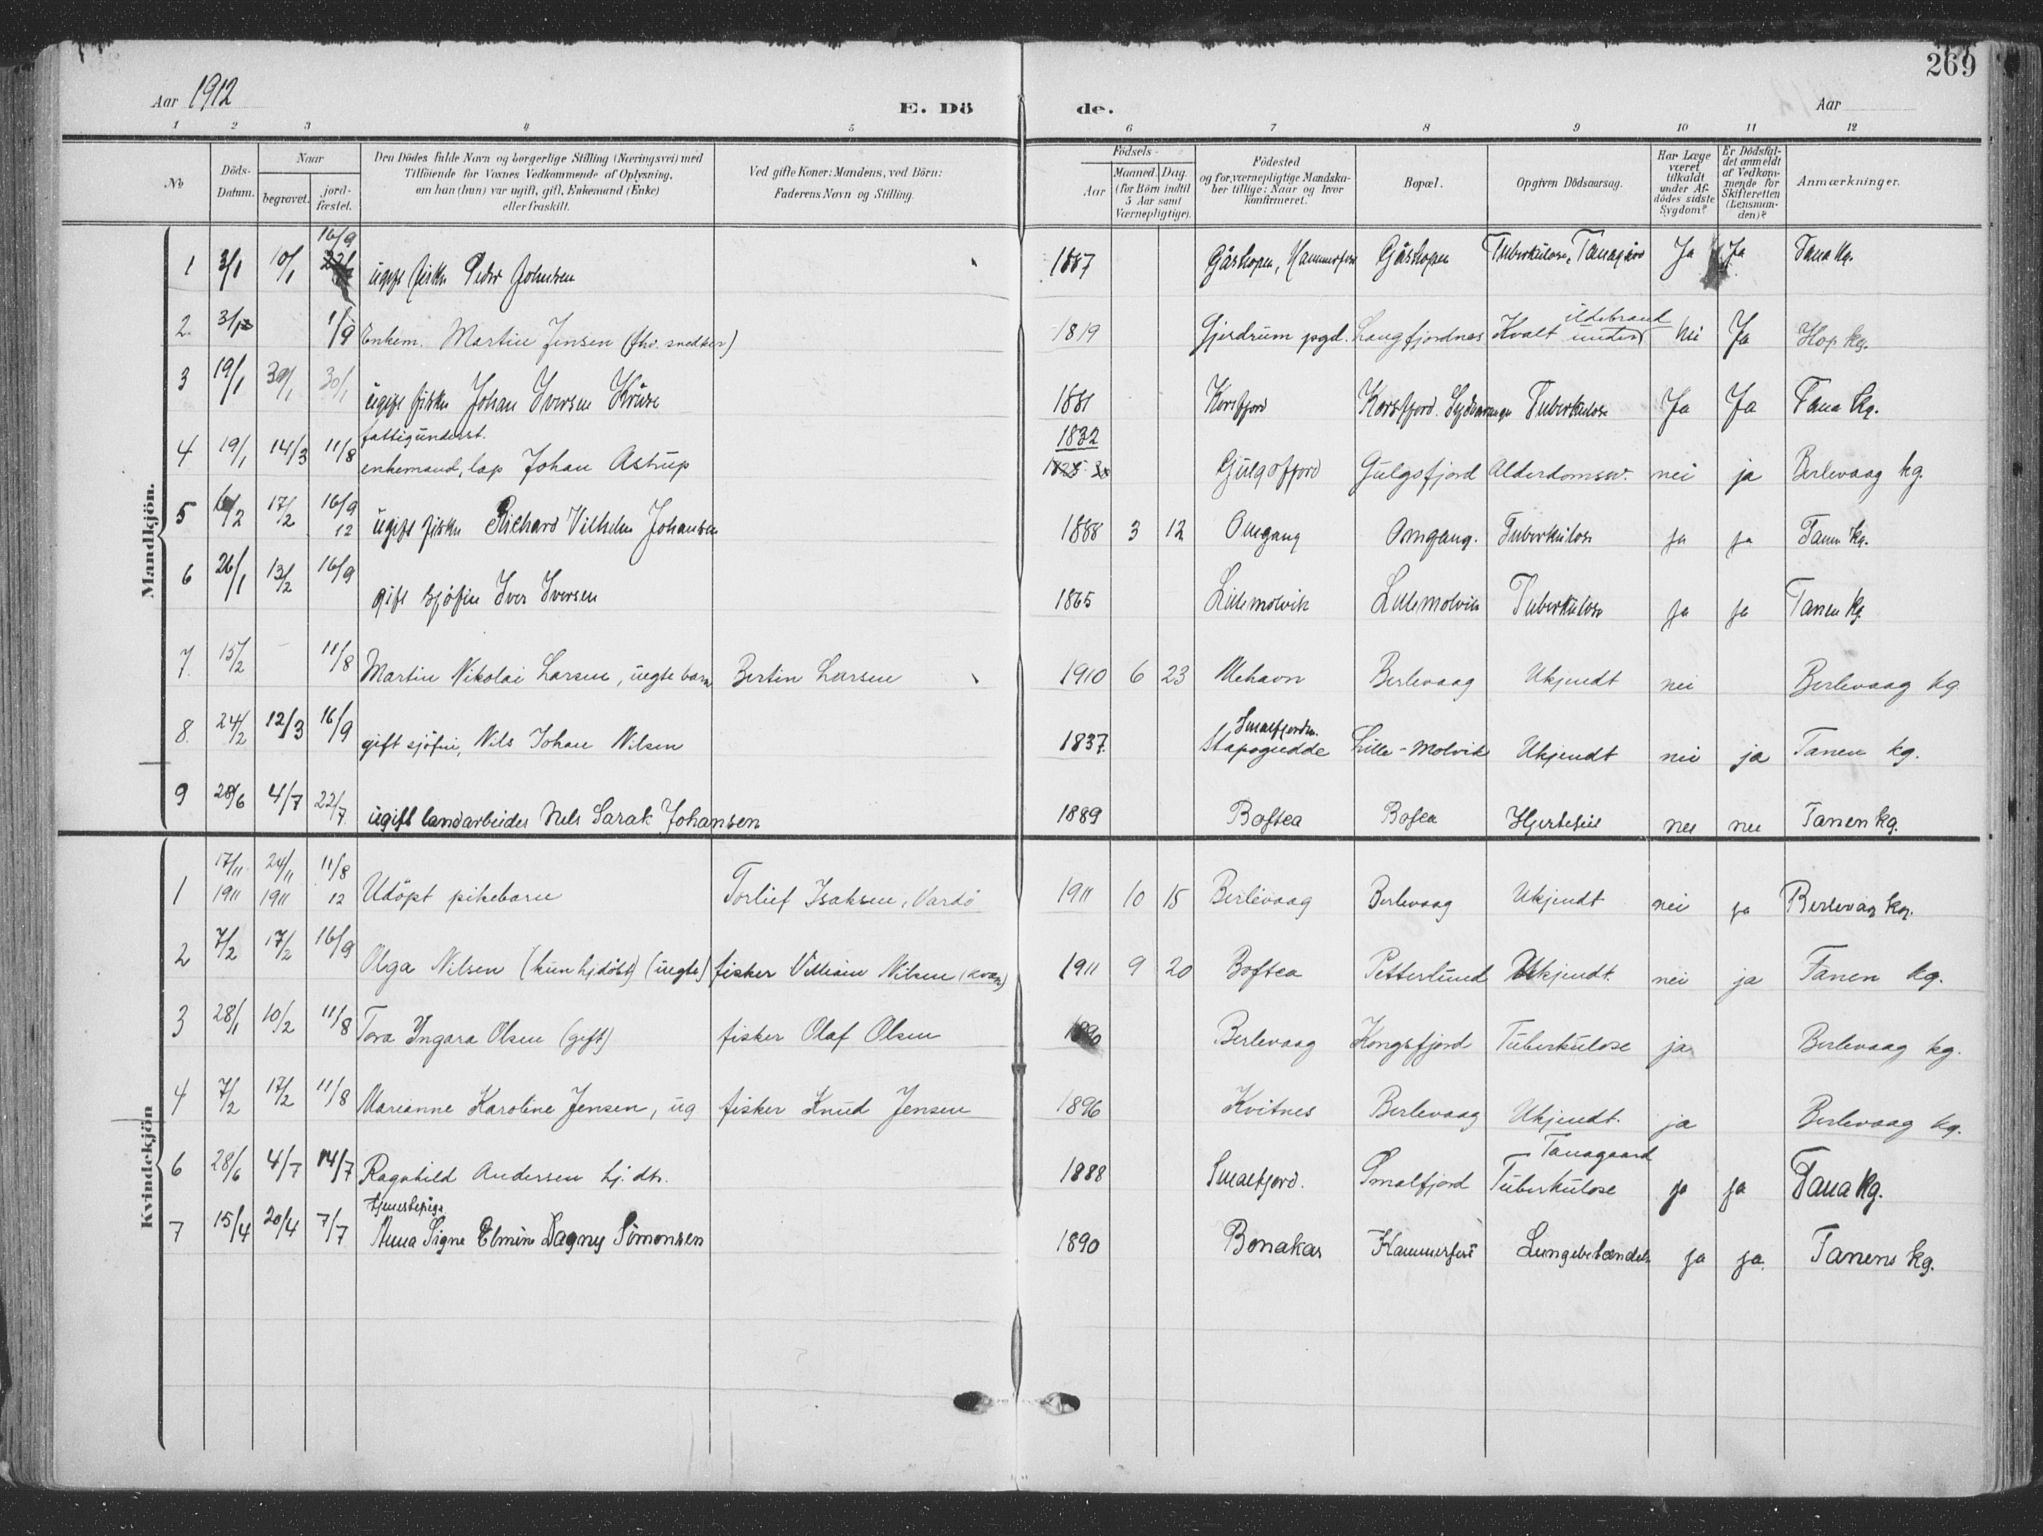 269
Aar 1912 E. Dö de. Aar
1 2 3 4 5 6 7 8 9 10 11 12
No
Döds-
Datum.
Naar
begravet.
jord-
fæstet.
Den Dödes fulde Navn og borgerlige Stilling (Næringsvei) med
Tilföiende for Voxnes Vedkommende af Oplysning,
om han (hun) var ugift, gift, Enkemand (Enke)
eller fraskilt.
Ved gifte Koner: Mandens, ved Börn:
Faderens Navn og Stilling.
Födsels-
Aar
Maaned. Dag.
(for Börn indtil
5 Aar samt
Værnepligtige).
Födested
og for værnepligtige Mandska-
ber tillige: Naar og hvor
konfirmeret.
Bopæl.
Opgiven Dödsaarsag.
Har Læge
været
tilkaldt
under Af-
dödes sidste
Sygdom?
Er Dödsfal-
det anmeldt
af Vedkom-
mende for
Skifteretten
(Lensman-
den)?
Anmærkninger.
Mandkjön.
1 3/1 10/1 16/9 ugift fisker Peder Johnsen 1887 Gåshopen, Hammerfest Gåshopen Tuberkulose, Tanagård Ja Ja Tana kg.
2. 3/12 1/9 Enkem. Martin Jensen (fhv. snedker) 1819 Gjerdrum pgd. Langfjordnes Kvalt under ildebrand nei Ja Hop kg.
3 19/1 30/1 30/1 ugift fisker Johan Iversen Kruse 1881 Korsfjord Korsfjord. Sydvaranger Tuberkulose Ja Ja Tana kg.
4 19/1 14/3 11/8 fattigunderst. enkemand, lap Johan Astrup 1832 Gulgofjord Gulgofjord Alderdomssv. nei ja Berlevaag kg.
5 6/2 17/2 16/9 12 ugift fisker Richard Vilhelm Johansen 1888 3 12 Omgang Omgang. Tuberkulose ja ja Tanen kg.
6 26/1 13/2 16/9 gift sjöfin Iver Iversen 1865 Lillemolvik Lillemolvik Tuberkulose ja ja Tanen kg.
7. 15/2 - 11/8 Martin Nikolai Larsen, uegte barn Bertin Larsen 1910 6 23 Mehavn Berlevaag Ukjendt nei Berlevaag kg
8. 24/2 12/3 16/9 gift sjöfin, Nils Johan Nilsen 1837. Smalfjorden. Stapogiedde Lille-Molvik Ukjendt nei ja Tanen kg.
9 28/6 4/7 22/7. ugift landarbeider Nils Sarak Johansen 1889 Boftea Bofea Hjertefeil nei nei Tanen kg.
Kvindekjön
1 17/11 1911 24/11 1911 11/8 12 Udöpt pikebarn Torlief Isaksen, Vardö 1911 10 15 Berlevaag Berlevaag Ukjendt nei ja Berlevåg kg.
2 7/2 17/2 16/9 Olga Nilsen (kun hjdöbt) (uegte) fisker Villiam Nilsen (kvæn) 1911 9 20 Boftea Petterlund Ukjendt. nei ja Tanen kg.
3 28/1 10/2 11/8 Tora Ingara Olsen (gift) fisker Olaf Olsen Berlevaag Kongsfjord Tuberkulose ja Berlevaag kg.
4 7/2 17/2 11/8 Marianne Karoline Jensen, ug fisker Knud Jensen 1896 Kvitnes Berlevaag Ukjendt. ja Berlevaag kg.
6 28/6 4/7 14/7 Ragnhild Andersen hj. dtr. 1888 Smalfjord. Smalfjord Tanagaard Tuberkulose ja ja Tana kg.
7 15/4 20/4 7/7 tjenestepige Anna Signe Elmine Dagny Simonsen 1890 Bonakas Hammerfest Lungebetændelse ja ja. Tanens kg.